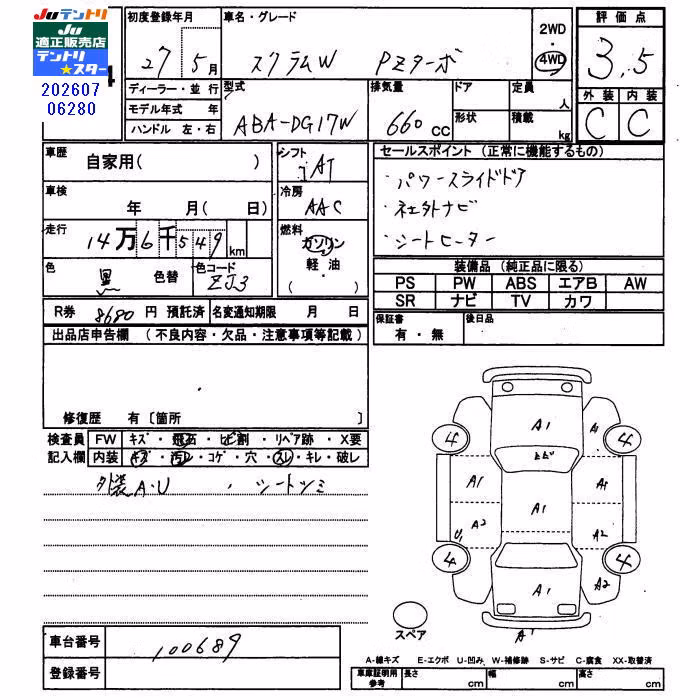 Juテントリ
Ju
適正販売店
テントリ
★スター
202607
06280
初度登録年月
27 5月
車名・グレード
スクラムW PZターボ
2WD
・
4WD
評価点
3.5
外装 内装
C C
ディーラー・並行
モデル年式 年
ハンドル 左・右
型式
ABA-DG17W
排気量
660 CC
ドア
形状
定員
人
積載
kg
車歴
自家用( )
シフト
AT
車検
年 月( 日)
冷房
AAC
走行
14万6千549km
燃料
ガソリン
・
軽油
( )
色
黒 色替
色コード
ZJ3
セールスポイント (正常に機能するもの)
・パワースライドドア
・社外ナビ
・シートヒーター
装備品 (純正品に限る)
PS PW ABS エアB AW
SR ナビ TV カワ
R券 8680 円 預託済
名変通知期限 月 日
保証書
有・無
後日品
出品店申告欄 (不良内容・欠品・注意事項等記載)
修復歴 有〔箇所 〕
検査員 FW キズ・飛石・ヒビ割・リペア跡・X要
記入欄 内装 キズ・汚レ・コゲ・穴・スレ・キレ・破レ
外装A.U ・シートシミ
A1
4 4
A1
A1 A1 A1
A2 A2
U1
4 4
A1 A2
A1
スペア
車台番号 100689
登録番号
A-線キズ E-エクボ U-凹み W-補修跡 S-サビ C-腐食 XX-取替済
車庫証明用
参考
長さ cm 幅 cm 高さ cm